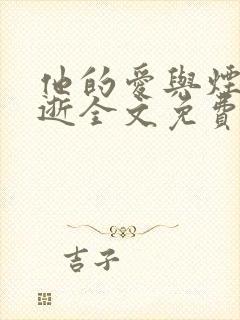 他的愛與煙
逝全文免費
吉子